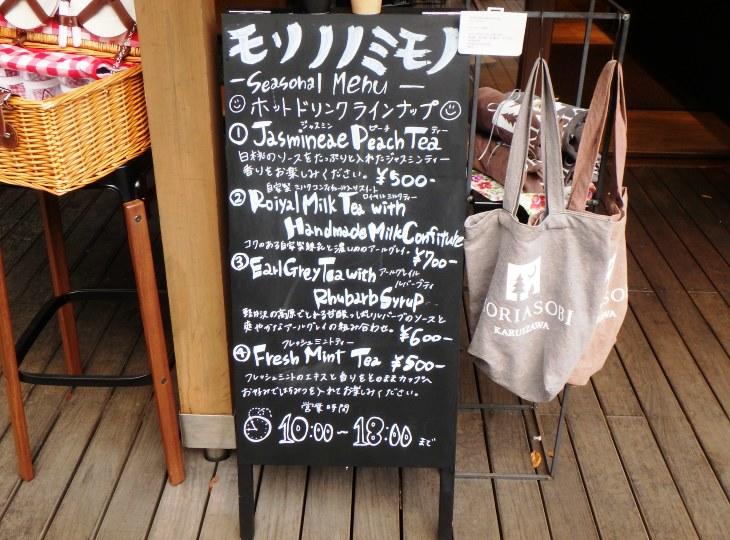 モリノノミモノ
— Seasonal Menu —
ホットドリンクラインナップ
① Jasmineae Peach Tea
ジャスミン ピーチ ティー
白桃のソースをたっぷりと入れたジャスミンティー
香りをお楽しみください。 ¥500-
② Roiyal Milk Tea with
ロイヤルミルクティー
Handmade Milk Confiture
コクのある自家製練乳と濃いめのアールグレイ。 ¥700-
③ Earl Grey Tea with
アールグレイ
ルバーブティ
Rhubarb Syrup
軽井沢の高原でとれる甘酸っぱいルバーブのソースと
爽やかなアールグレイの組み合わせ。 ¥600-
フレッシュミントティー
④ Fresh Mint Tea ¥500-
フレッシュミントのエキスと香りをそのままカップへ
お好みではちみつを入れてお楽しみください。
営業時間
10:00~18:00 まで
ORIASOBI
KARUIZAWA